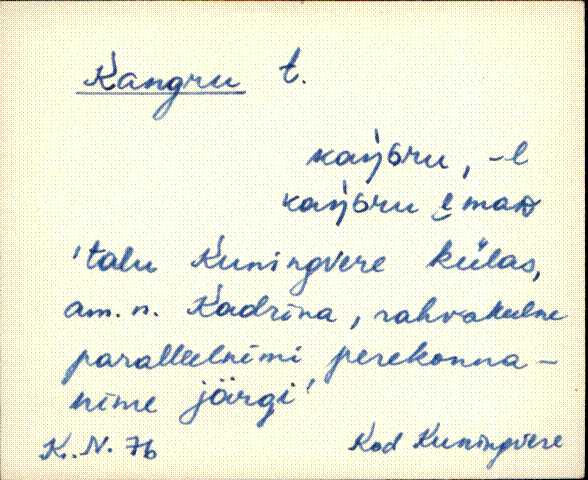 Kangru t.
kaŋ̀Gru, -l
kaŋ̀Gru
'talu Kuningvere külas,
am. n. Kadrina, rahvakeelne
paralleelnimi perekonna-
nime järgi'
K. N. 76 Kod Kuningvere